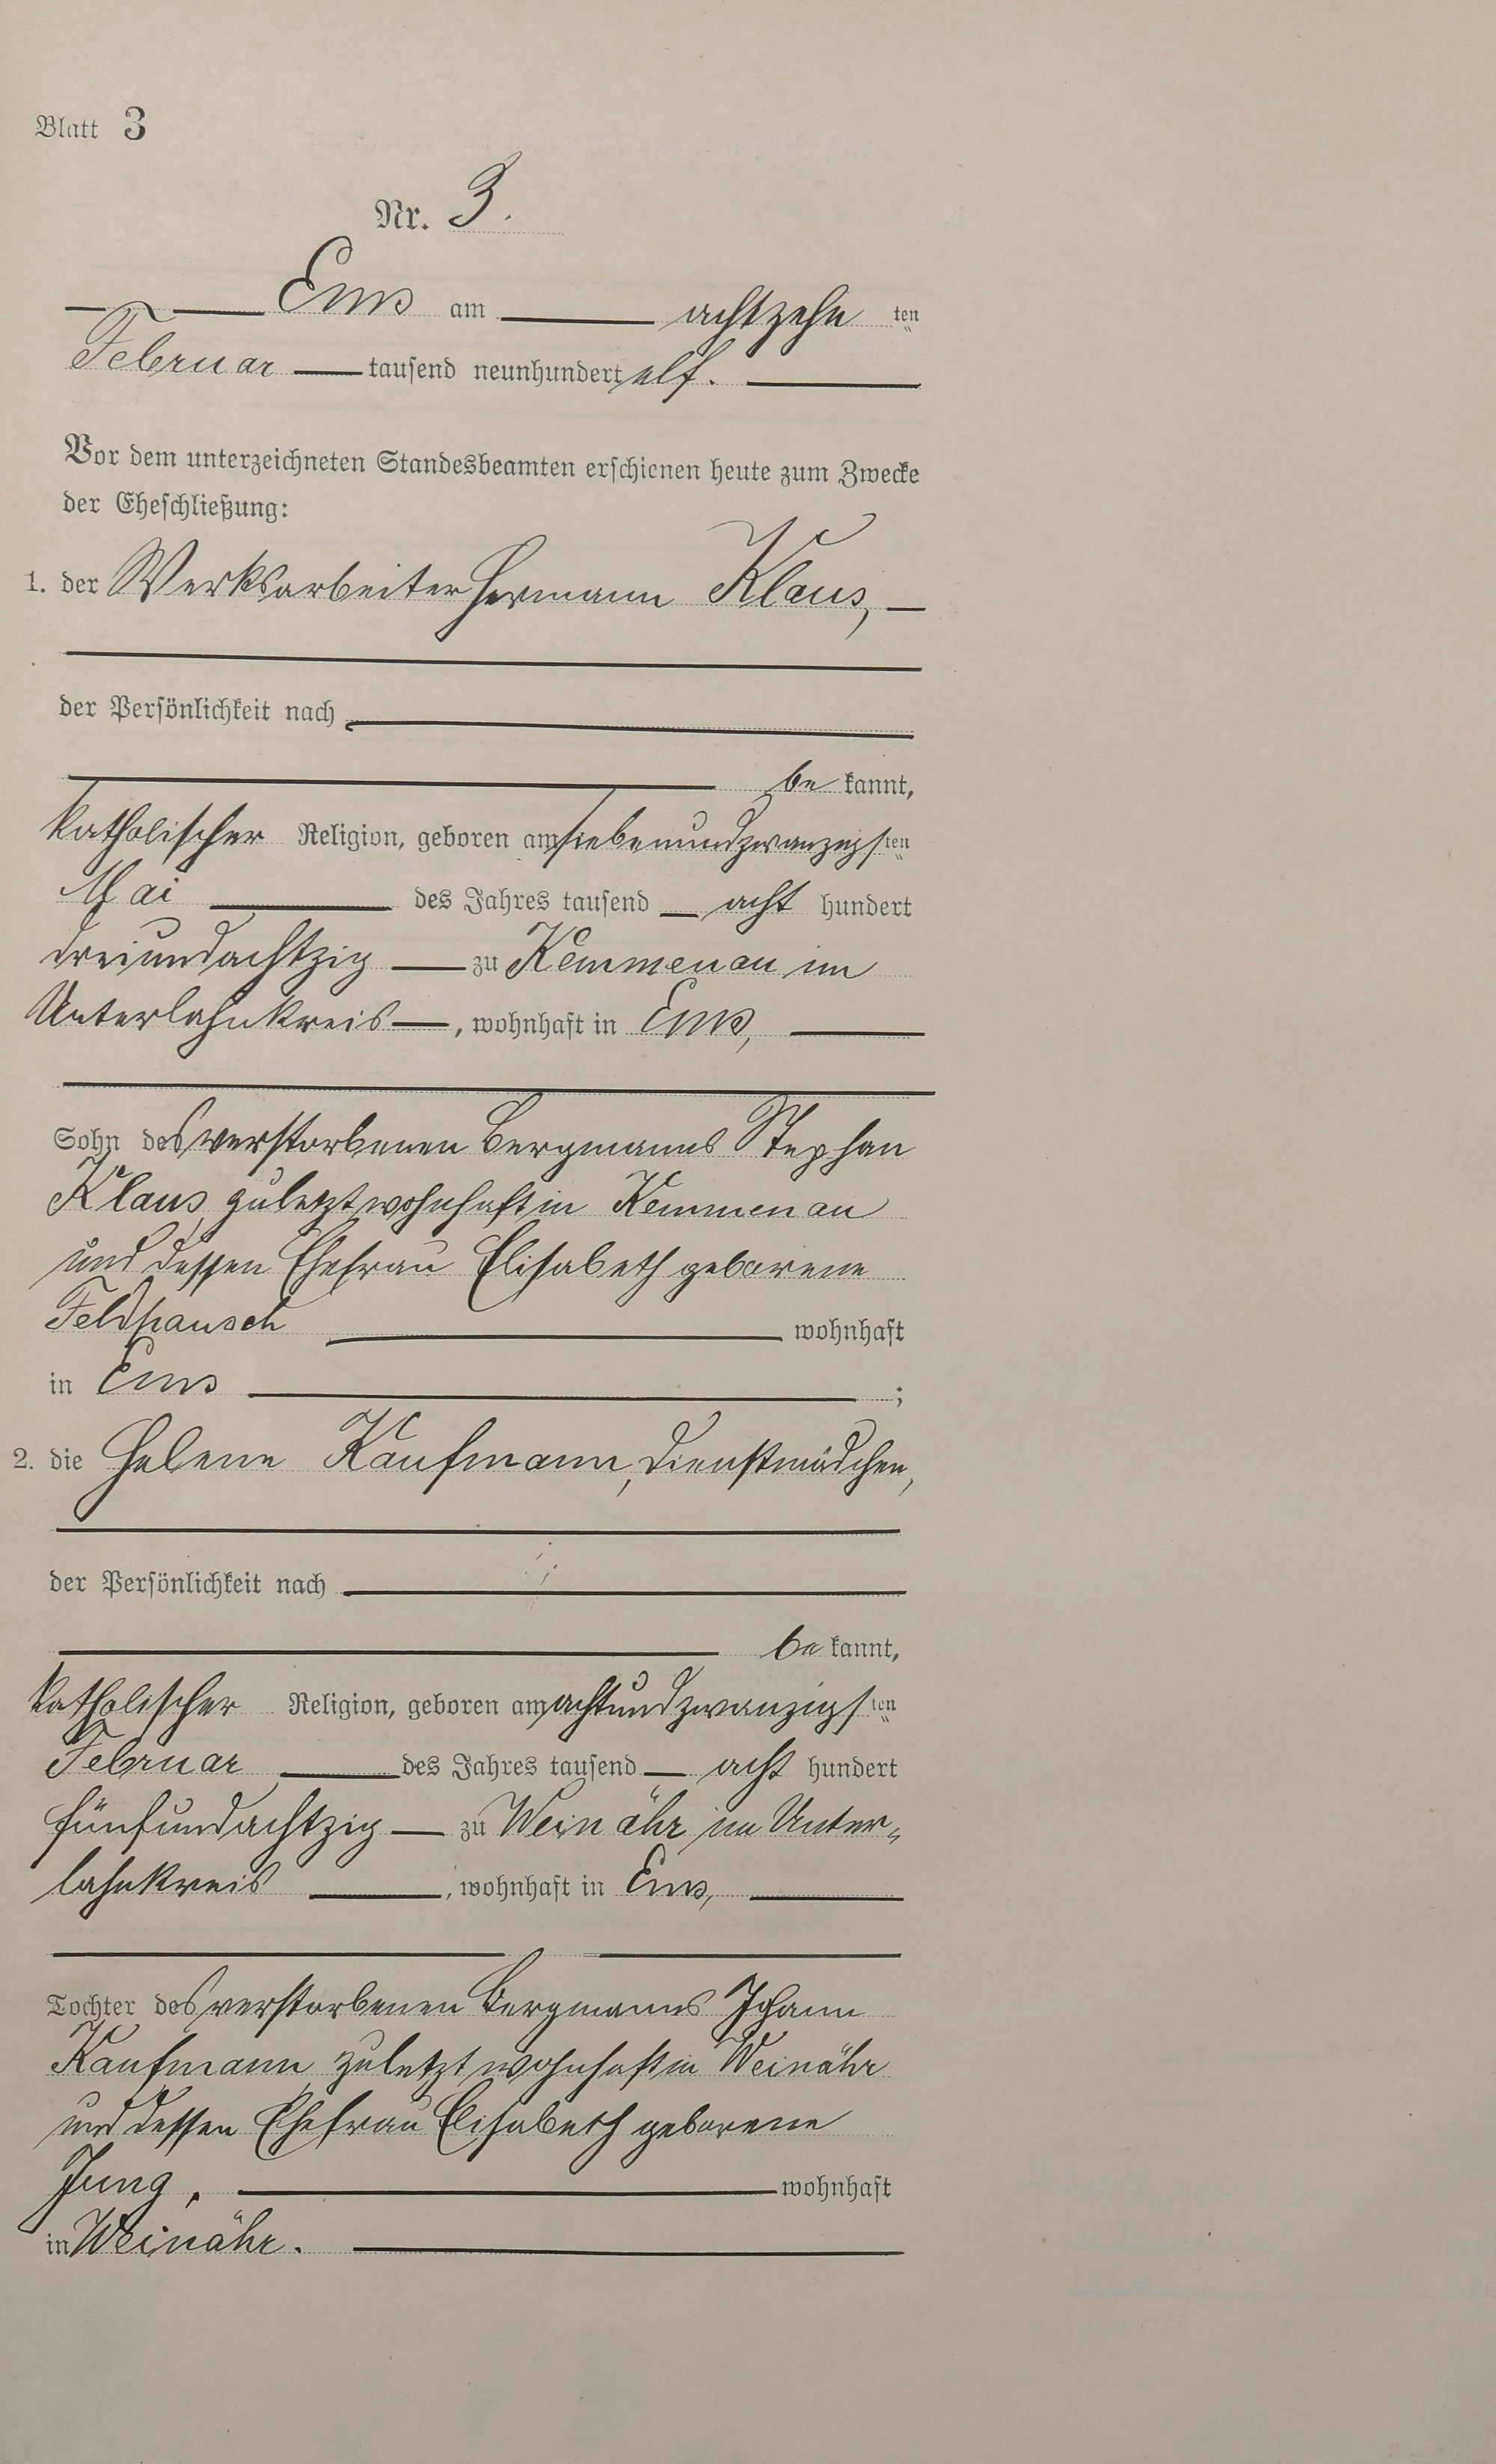 Blatt 3
Nr. 3.
Ems am achtzehn ten
Februar tausend neunhundert elf.
Vor dem unterzeichneten Standesbeamten erschienen heute zum Zwecke
der Eheschließung:
1. der Werksarbeiter Hermann Klaus,
der Persönlichkeit nach
be kannt,
katholischer Religion, geboren am siebenundzwanzigsten
Mai des Jahres tausend acht hundert
dreiundachtzig zu Kemmenau im
Unterlahnkreis, wohnhaft in Ems,
Sohn des verstorbenen Bergmanns Stephan
Klaus, zuletzt wohnhaft in Kemmenau
und dessen Ehefrau Elisabeth geborene
Feldhausch wohnhaft
in Ems ;
2. die Helene Kaufmann, Dienstmädchen,
der Persönlichkeit nach
be kannt,
katholischer Religion, geboren am achtundzwanzigsten
Februar des Jahres tausend acht hundert
fünfundachtzig zu Weinähr im Unter„
lahnkreis, wohnhaft in Ems,
Tochter des verstorbenen Bergmanns Johann
Kaufmann, zuletzt wohnhaft in Weinähr
und dessen Ehefrau Elisabeth geborene
Jung, wohnhaft
in Weinähr.